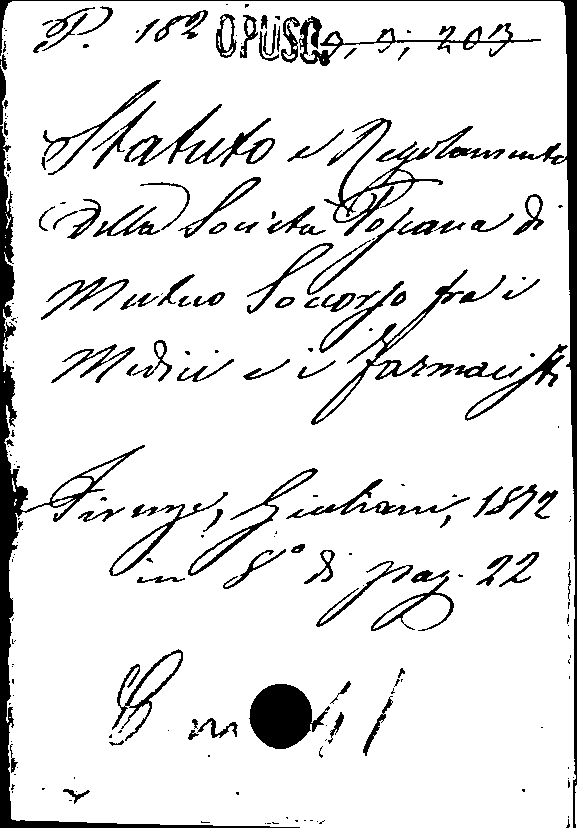 P. 182 OPUSC. 9, 3, 203
Statuto e Regolamento
della Società Toscana di
Mutuo Soccorso fra i
Medici e i Farmacisti
Firenze, Giuliani, 1872
in 8° di pag. 22